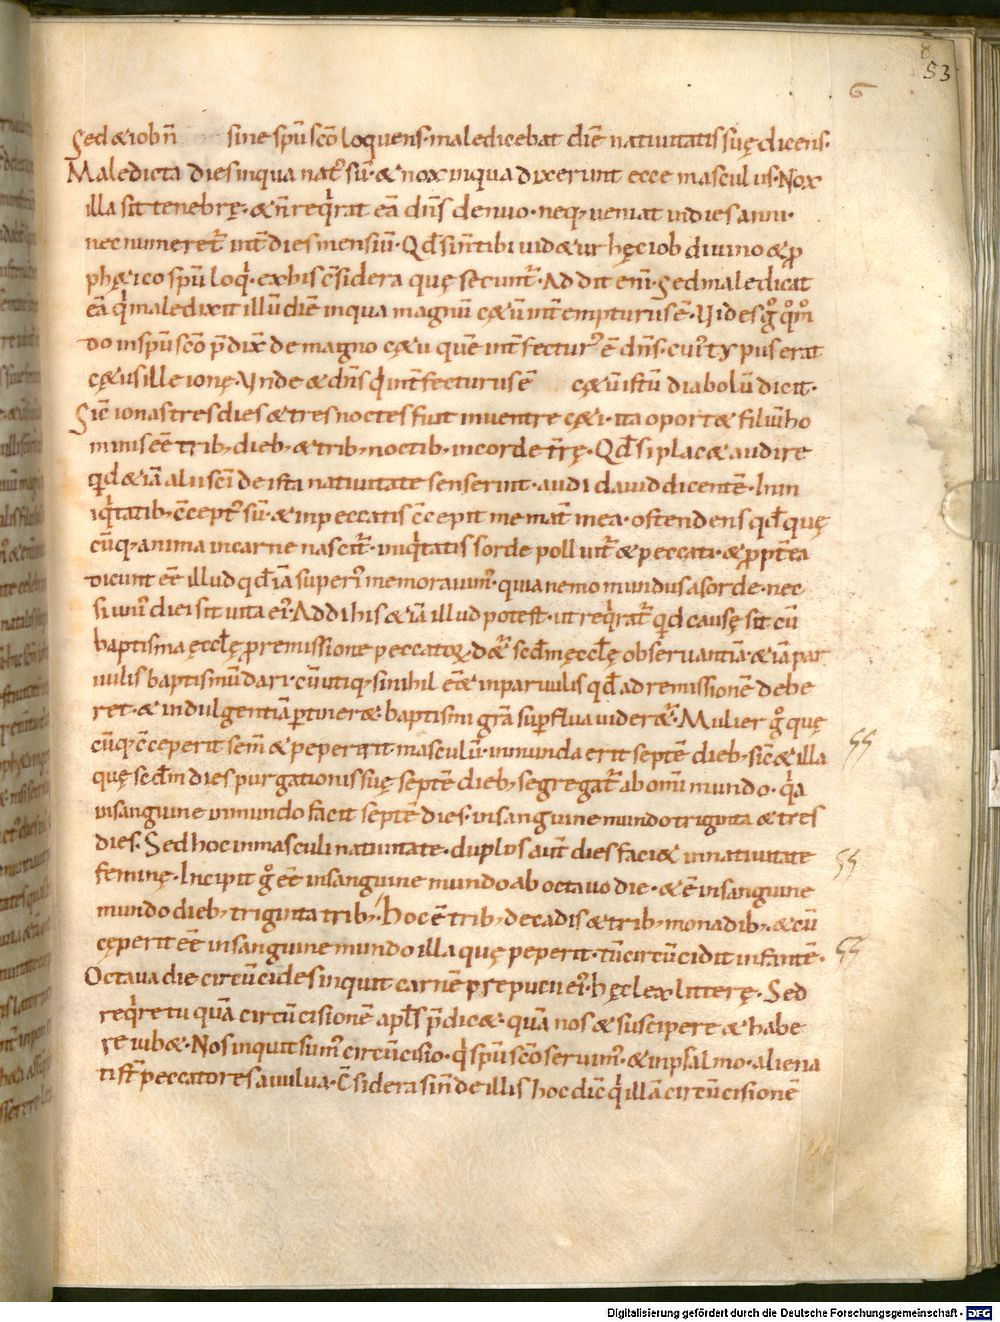 8
53
6
Sed & iob n̄ sine sp̄u sc̄o loquens· maledicebat diē nativitatis suę dicens·
Maledicta dies in qua nat᾿ sū· & nox in qua dixerunt ecce masculus· Nox
illa sit tenebrę· & n̄ req̇rat eā dn̄s denuo· neq; veniat in dies anni·
nec numeret᾿ int̄ dies mensiū· Qd̄ si n̄ tibi vid&ur hęc iob divino & ꝓ
ph&ico sp̄u loq̇· ex his c̄sidera quę secunt᾿· Addit eni᾿· Sed maledicat
eā q̇ maledixit illū diē in qua magnū c&ū int̄empturus ē· Vides g̊ q̊m̊
do in sp̄u sc̄o p̄dix̄ de magno c&u quē int̄fectur᾿ ē dn̄s· cui᾿ typus erat
c&us ille ionę· Unde & dn̄s q̇ int̄fecturus ē c&ū istū diabolū dicit·
Sic̄ ionas tres dies & tres noctes fuit in ventre c&i· ita oport& filiū ho
minis eē trib; dieb; & trib; noctib; in corde t̄rę· Qd̄ si plac& audire
qd & iā alii sc̄i de ista nativitate senserint· audi david dicentē· In in
iq̇tatib; c̄cept᾿ sū· & in peccatis c̄cepit me mat̄ mea· ostendens qd̄ quę
cūq; anima in carne nascit᾿· iniq̇tatis sorde polluit᾿ & peccati· & ꝓpt̄ea
dicunt eē illud qd̄ iā superi᾿ memoravim᾿· quia nemo mundus a sorde· nec
si uni᾿ diei sit vita ei᾿· Addi his &iā illud potest· ut req̇rat᾿ qd causę sit cū
baptisma ęccl̄ę ꝓ remissione peccatoꝝ d&᾿ scd̄m ęccl̄ę observantiā· &iā par
vulis baptismū dari· cū utiq; si nihil eē& in parvulis qd̄ ad remissionē debe
ret· & indulgentiā ꝑtiner&· baptismi gr̄a suꝑflua vider&᾿· Mulier g̊ quę
cūq; c̄ceperit sem̄ & pepererit masculū· inmunda erit septē dieb; sic̄ & illa
quę scd̄m dies purgationis suę septē dieb; segregat᾿ ab omī mundo· q̇a
in sanguine inmundo facit septē dies· in sanguine mundo triginta & tres
dies· Sed hoc in masculi nativitate· duplos aut̄ dies faci& in nativitate
feminę· Incipit g̊ eē in sanguine mundo ab octavo die· & ē in sanguine
mundo dieb; triginta trib; Hoc ē trib; decadis & trib; monadib;· & cū
cęperit eē in sanguine mundo illa quę peperit· tūc circūcidit infantē·
Octava die circūcides inquit carnē prepucii ei᾿· hęc lex litterę· Sed
req̇re tu quā circūcisionē apl̄s p̄dic&· quā nos & suscipere & habe
re iub&· Nos inquit sum᾿ circūcisio· q̇ sp̄u sc̄o servim᾿· & in psalmo· aliena
ti s̄t peccatores a vulva· C̄sidera si n̄ de illis hoc dic̄ q̇ illā circūcisionē
Digitalisierung gefördert durch die Deutsche Forschungsgemeinschaft - DFG